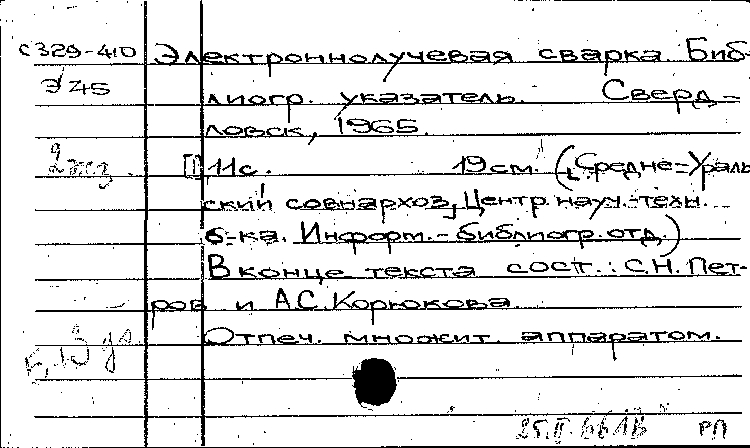 С329-410 Электроннолучевая сварка. Биб-
Э45 лиогр. указатель. Сверд=
ловск, 1965.
2 экз. [1] 11с. 19 см. (Средне=Ураль
ский совнархоз, Центр. науч.-техн.
б-ка. Информ.-библиогр. отд.)
В конце текста сост.: С.Н. Пет-
ров и А.С. Корюкова.
Отпеч. множит. аппаратом.
РП